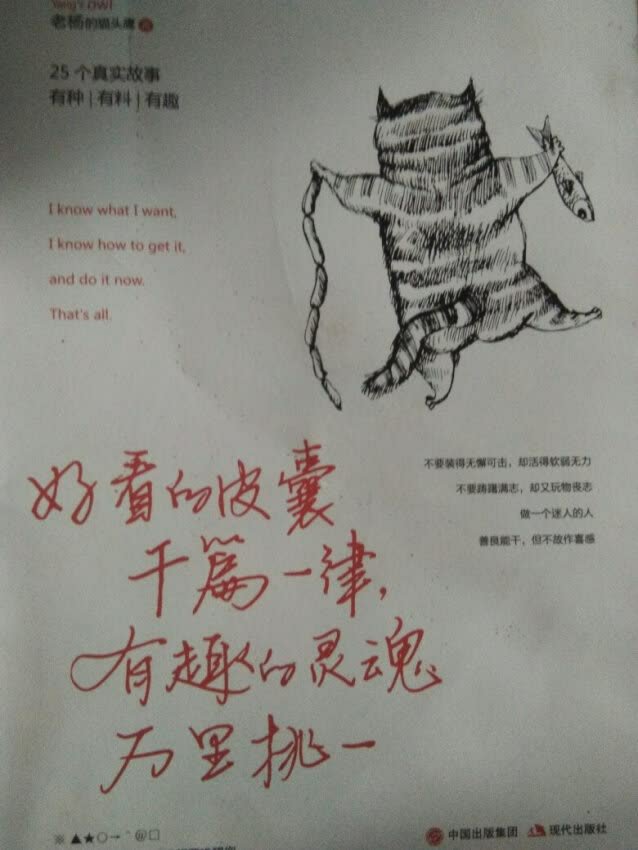 Yang's OWL
老杨的猫头鹰 著
25个真实故事
有种|有料|有趣
I know what I want,
I know how to get it,
and do it now.
That's all.
不要装得无懈可击，却活得软弱无力
不要踌躇满志，却又玩物丧志
做一个迷人的人
善良能干，但不故作喜感
好看的皮囊
千篇一律，
有趣的灵魂
万里挑一
※▲★○→＾＠□
中国出版集团 现代出版社